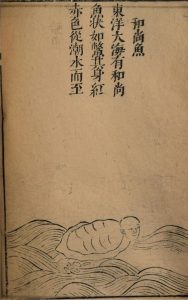 和尚魚
東洋大海有和尚
魚狀如鱉其身紅
赤色從潮水而至